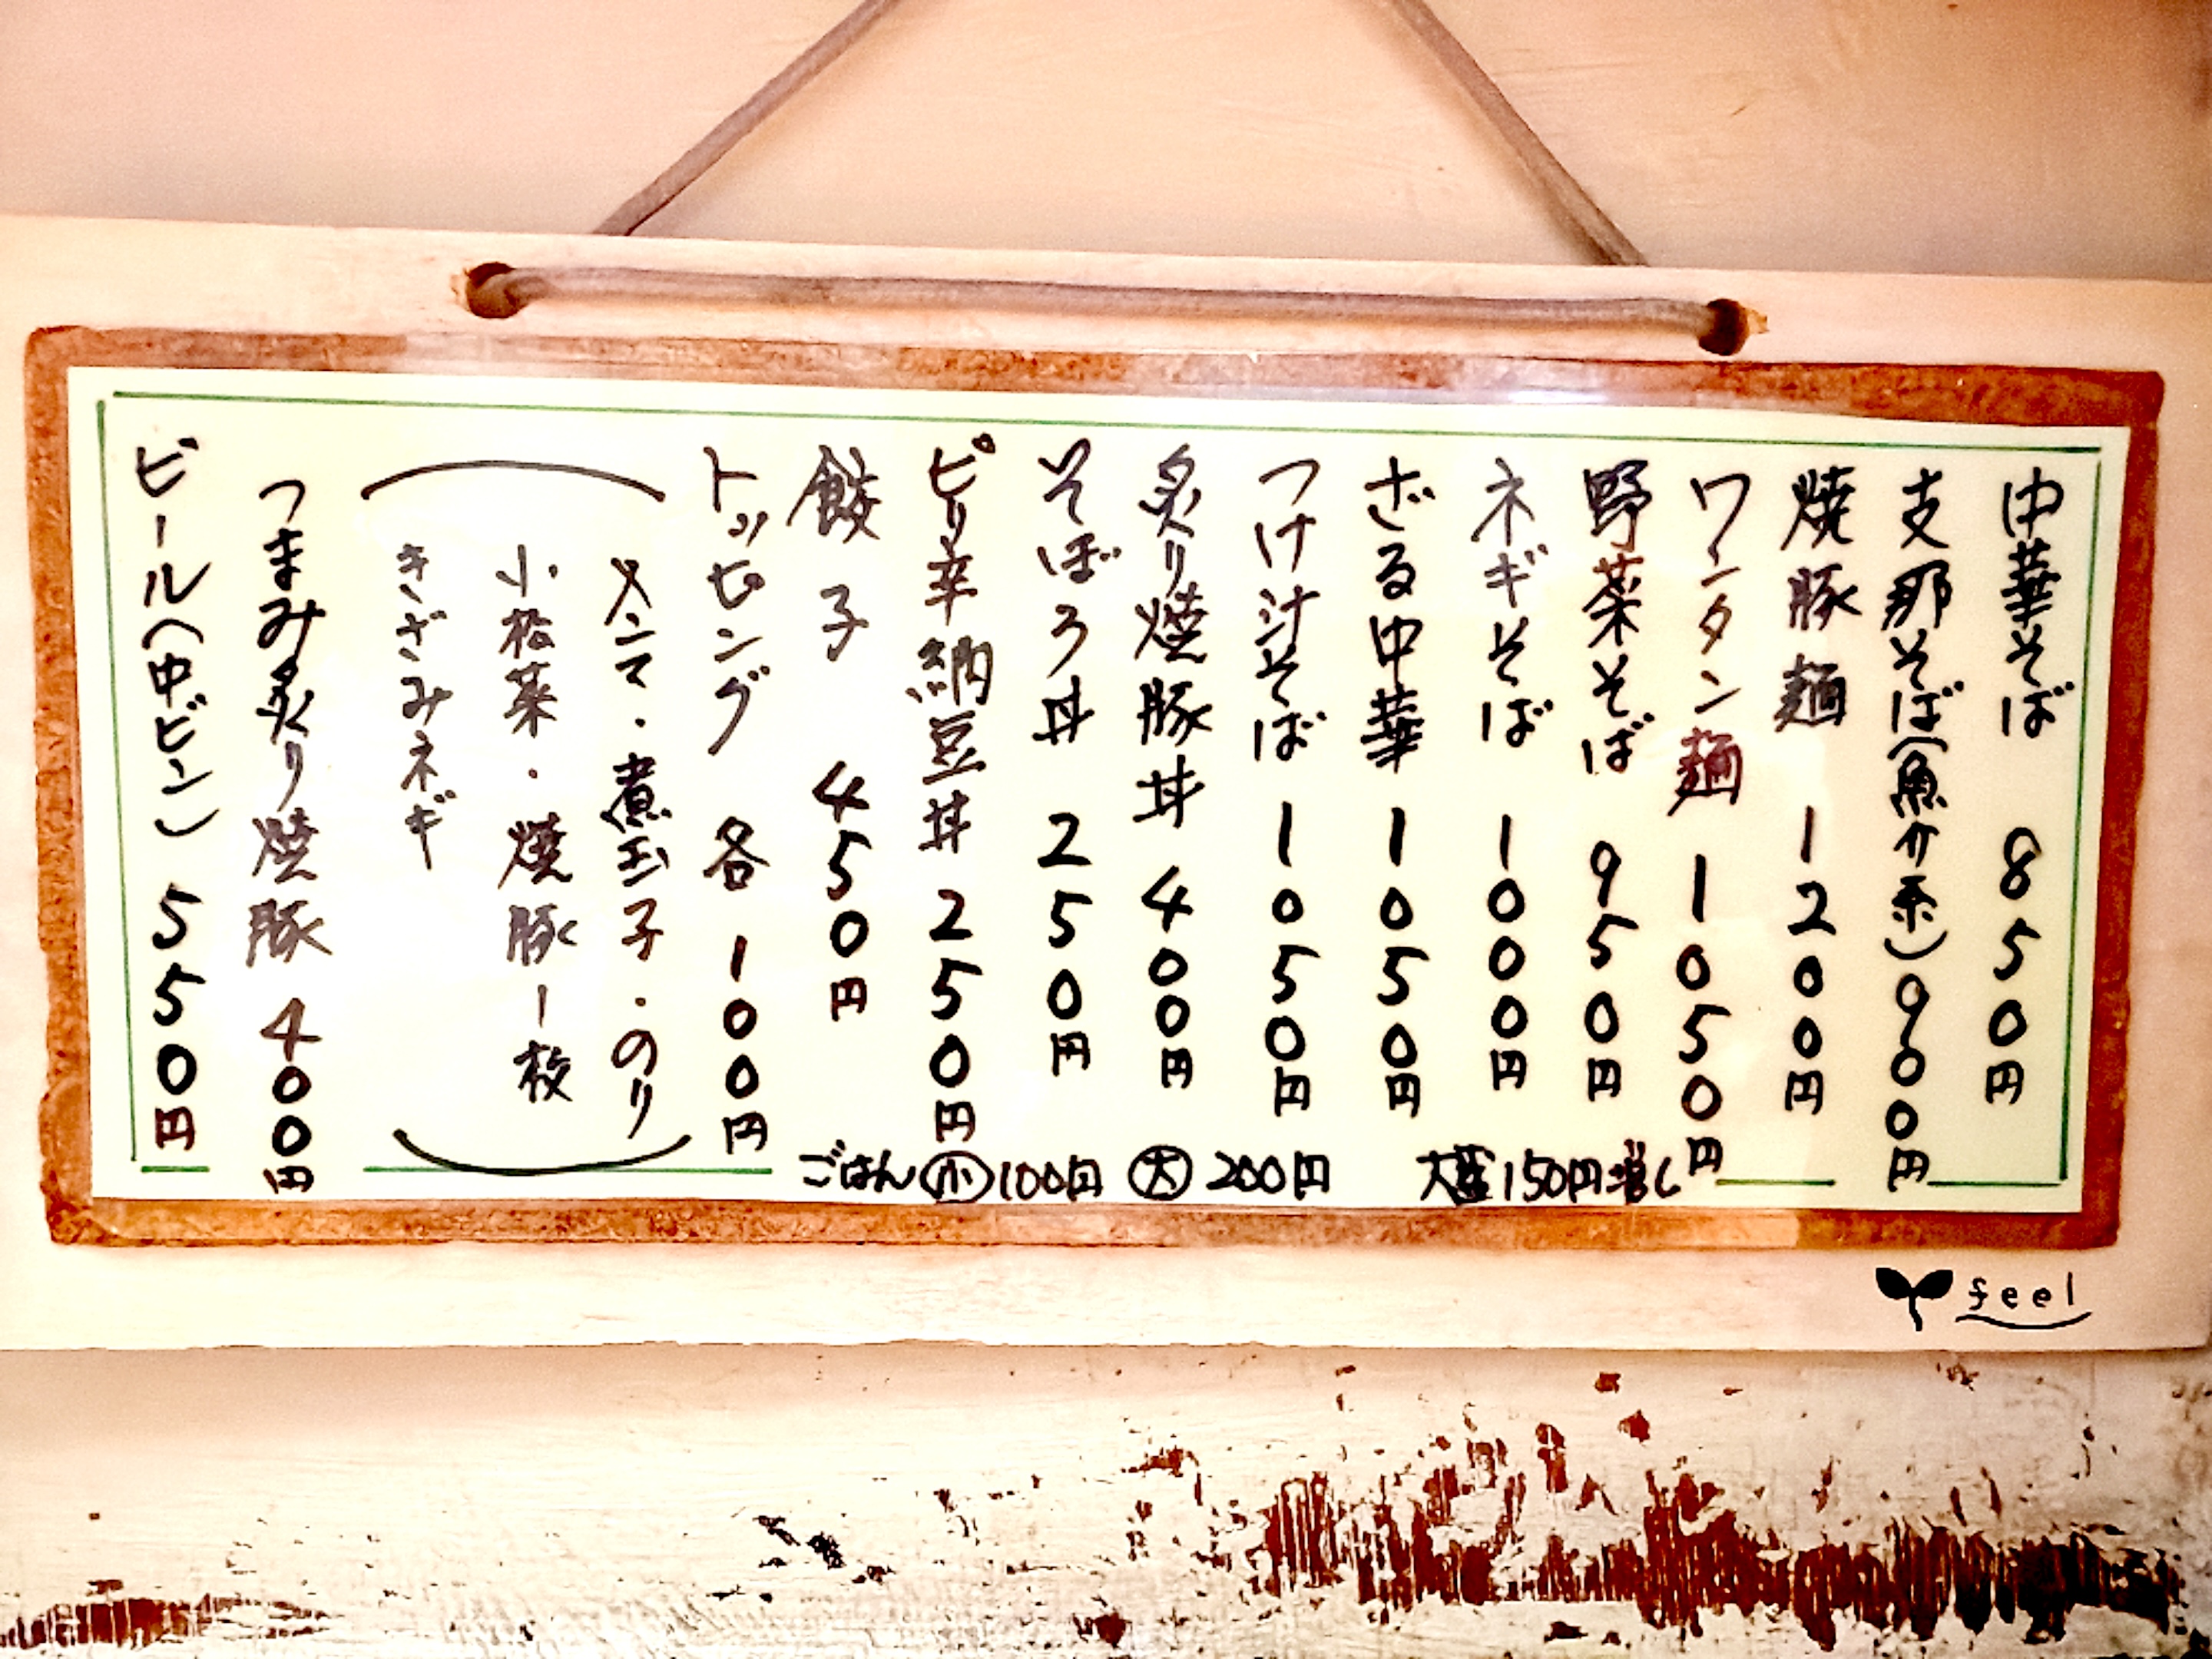 中華そば 850円
支那そば(魚介系)900円
焼豚麺 1200円
ワンタン麺 1050円
野菜そば 950円
ネギそば 1000円
ざる中華 1050円
つけ汁そば 1050円
炙り焼豚丼 400円
そぼろ丼 250円
ピリ辛納豆丼 250円
餃子 450円
トッピング 各100円
メンマ・煮玉子・のり
小松菜・焼豚一枚
きざみネギ
つまみ炙り焼豚 400円
ビール(中ビン) 550円
ごはん小100円 大200円 大盛150円増し
feel